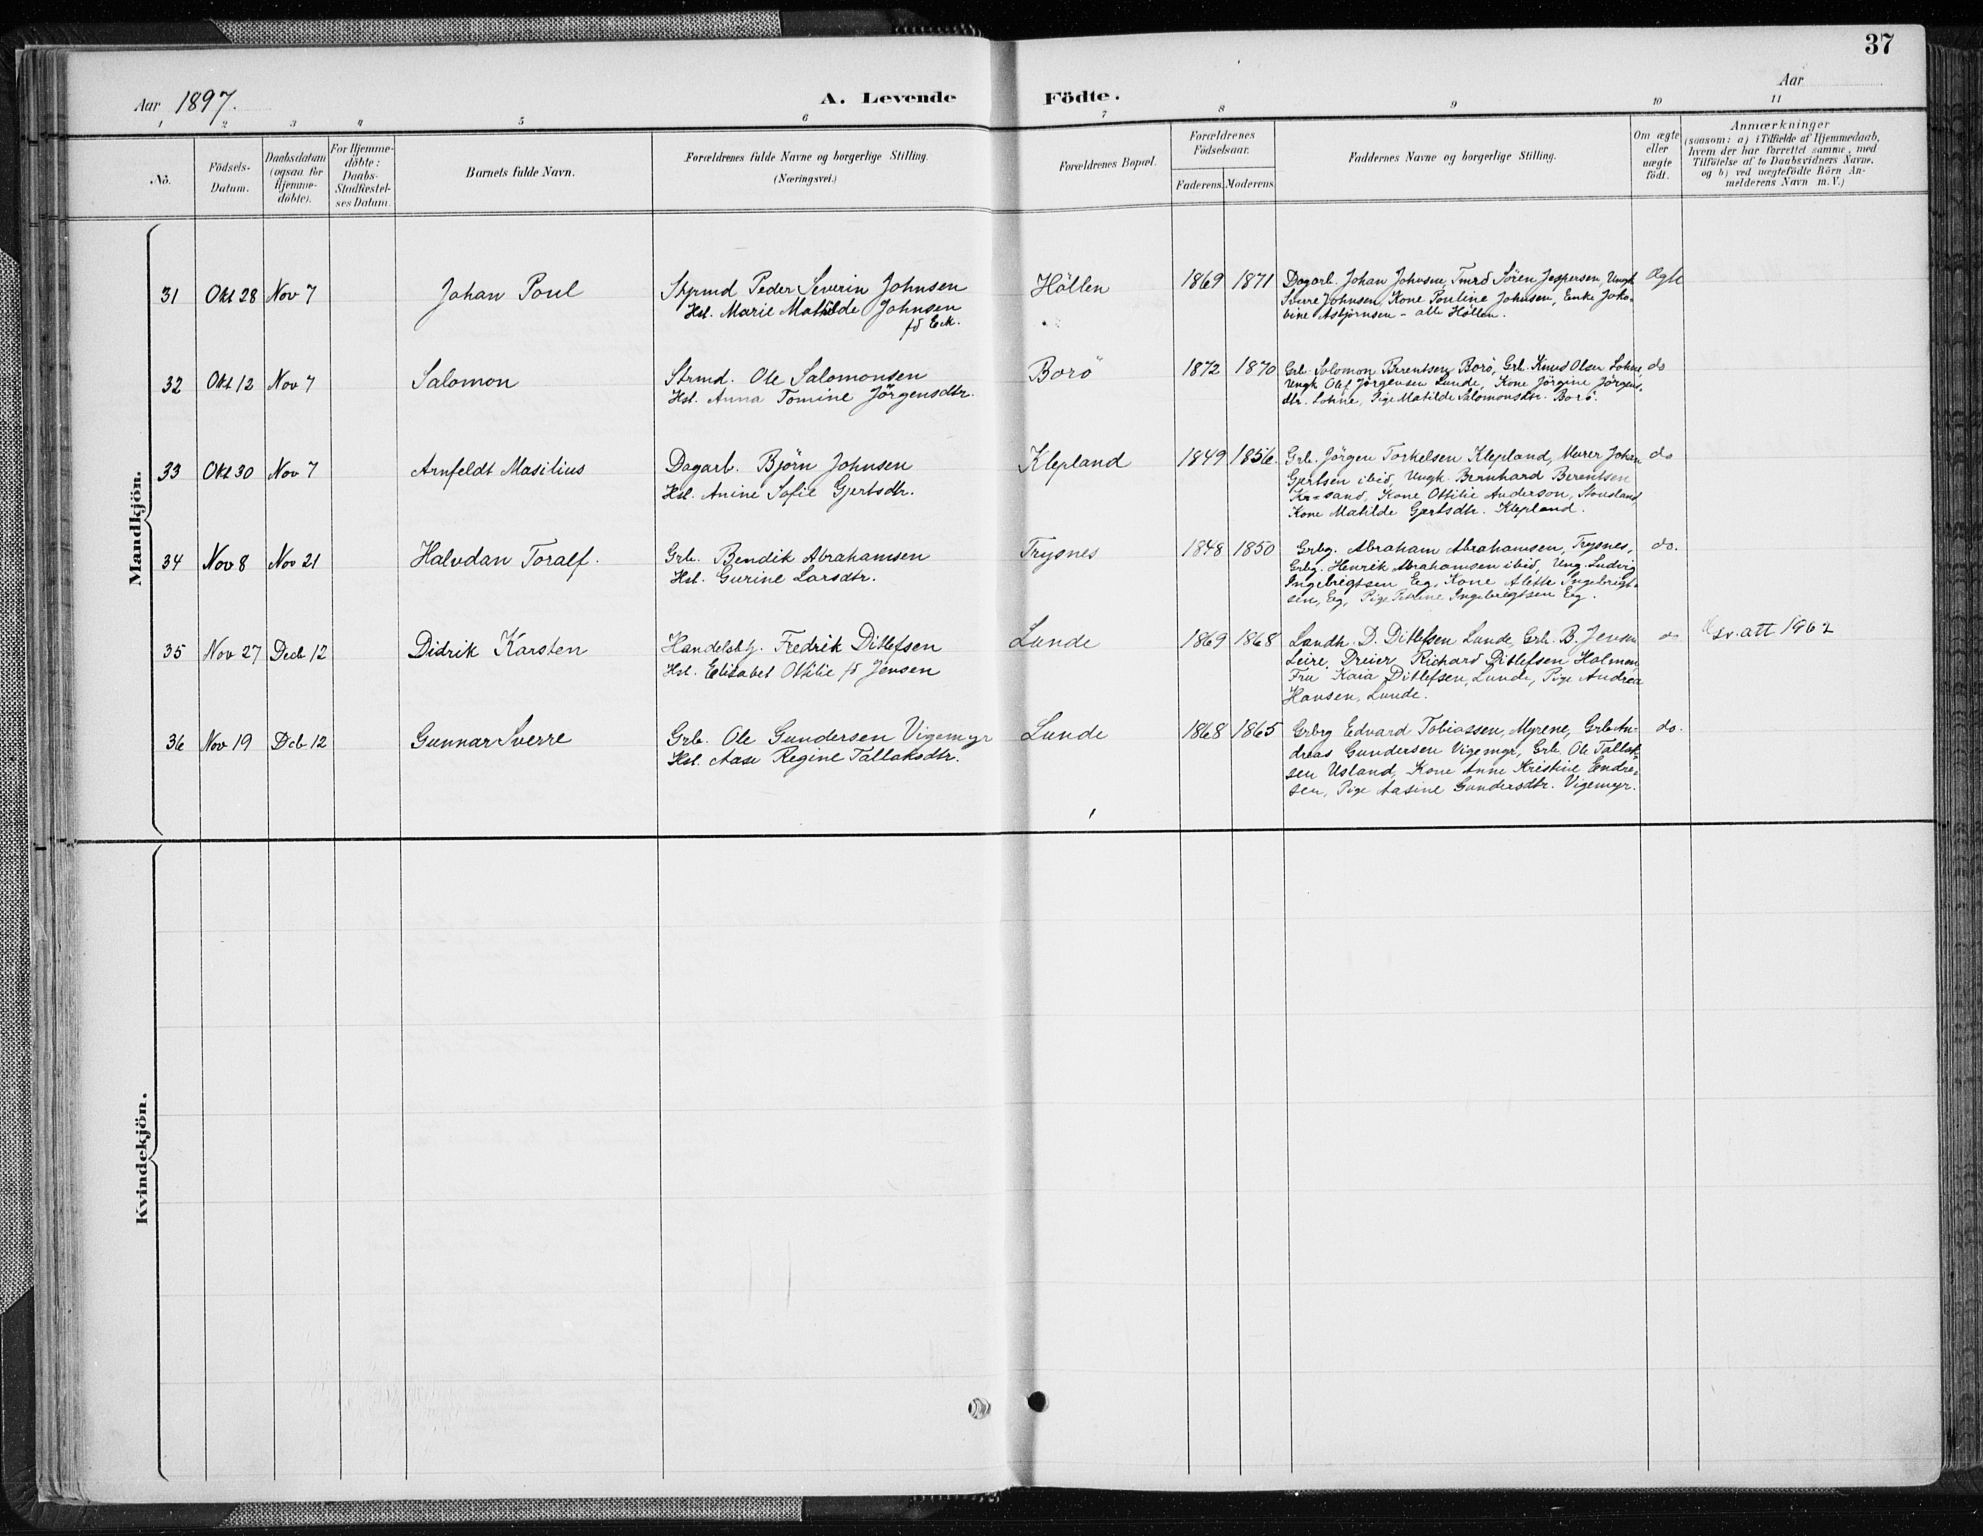 37
Aar 1897.
A. Levende Födte.
Aar
1 2 3 4 5 6 7 8 9 10 11
No.
Födsels-
Datum.
Daabsdatum
(ogsaa for
Hjemme-
döbte).
For Hjemme-
döbte:
Daabs-
Stadfæstel-
ses Datum.
Barnets fulde Navn.
Forældrenes fulde Navne og borgerlige Stilling.
(Næringsvei.)
Forældrenes Bopæl.
Forældrenes
Födselsaar.
Faderens. Moderens.
Faddernes Navne og borgerlige Stilling.
Om ægte
eller
uægte
födt.
Anmærkninger
(saasom: a) i Tilfælde af Hjemmedaab,
hvem der har forrettet samme, med
Tilföielse af to Daabsvidners Navne,
og b) ved uægtefödte Börn An-
melderens Navn m. V.)
Mandkjön.
31 Okt 28 Nov 7 Johan Poul
Styrmd Peder Severin Johnsen
Hst. Marie Mathilde Johnsen
fd Eck.
Höllen 1869 1871
Dagarb. Johan Johnsen, Tmrd Sören Jespersen, Ungk
Sverre Johnsen, Kone Pouline Johnsen, Enke Jako-
bine Asbjörnsen - alle Höllen.
Ægte
32 Okt 12 Nov 7 Salomon
Strmd. Ole Salomonsen
Hst. Anna Tomine Jörgensdtr.
Borö 1872 1870
Grb. Solomon Berentsen Borö, Grb. Knud Olsen Lohne,
Ungk Olef Jörgensen Lunde, Kone Jörgine Jörgens-
dtr. Lohne, Pige Matilde Salomonsdtr. Borö.
do
33 Okt 30 Nov 7 Arnfeldt Masilius
Dagarb. Björn Johnsen
Hst. Anine Sofie Gjertsdtr.
Klepland 1849 1856.
Grb. Jörgen Torkelsen Klepland, Murer Johan
Gjertsen ibid, Ungk. Bernhard Berentsen
Kr-sand, Kone Ottilie Anderson, Stousland,
Kone Matilde Gjertsdtr. Klepland.
do
34 Nov 8 Nov 21 Halvdan Toralf.
Grb. Bendik Abrahamsen
Hst. Gurine Larsdtr.
Trysnes 1848 1850
Grbg. Abraham Abrahamsen, Trysnes,
Grbg. Henrik Abrahamsen ibid, Ung. Ludvig
Ingebrigtsen Eeg, Kone Alette Ingebrigt-
sen, Eeg, Pige Petrine Ingebrigtsen Eeg.
do.
35 Nov 27 Decb 12 Didrik Karsten
Handelsbtj. Fredrik Ditlefsen
Hst. Elisabet Ottilie fd Jensen
Lunde 1869 1868
Landh. D. Ditlefsen Lunde, Grb. B. Jensen
Leire, Dreier Richard Ditlefsen Holmen,
Fru Kaia Ditlefsen, Lunde, Pige Andrea
Hansen, Lunde.
do
att 1962
36 Nov 19 Dcb 12 Gunnar Sverre
Grb. Ole Gundersen Vigemyr
Hst. Aase Regine Tallaksdtr.
Lunde 1868 1865
Grbrg Edvard Tobiassen, Myrene, Grb An-
dreas Gundersen Vigemyr, Grb. Ole Tallak-
sen Usland, Kone Anne Kristine Endre-
sen, Pige Aasine Gundersdtr. Vigemyr.
do.
Kvindekjön.